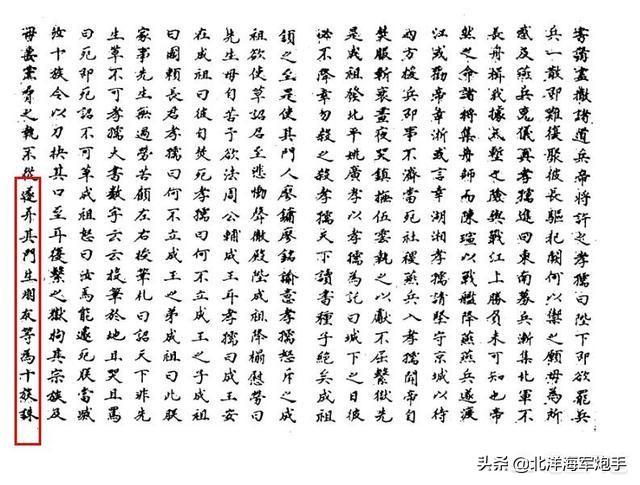 害請盡撤諸道兵帝將許之孝孺曰陛下即欲罷兵
兵一散即難復聚彼長驅犯闕何以禦之願毋為所
惑及燕兵克儀真孝孺進曰東南募兵漸集北軍不
長舟楫我據天塹之險與戰江上勝負未可知也帝
然之命諸將集舟師而陳瑄以戰艦降燕燕兵遂渡
江或勸帝幸浙或言幸湖湘孝孺請堅守京城以待
四方援兵即事不濟當死社稷燕兵入孝孺聞帝自
焚服斬衰晝夜哭鎮撫伍雲執之以獻不屈繫獄先
是成祖發北平姚廣孝以孝孺為託曰城下之日彼
必不降幸勿殺之殺孝孺天下讀書種子絕矣成祖
頷之至是使其門人廖鏞廖銘諭意孝孺怒斥之成
祖欲使草詔召至悲慟聲徹殿陛成祖降榻慰勞曰
先生毋自苦予欲法周公輔成王耳孝孺曰成王安
在成祖曰彼自焚死孝孺曰何不立成王之子成祖
曰國賴長君孝孺曰何不立成王之弟成祖曰此朕
家事先生無過勞苦顧左右授筆札曰詔天下非先
生草不可孝孺大書數字云云投筆於地且哭且罵
曰死即死詔不可草成祖怒曰汝焉能遽死朕當滅
汝十族令以刀抉其口至耳復繫之獄拘其宗族及
母妻黨脅之執不從遂并其門生朋友等為十族誅
头条 @北洋海军炮手